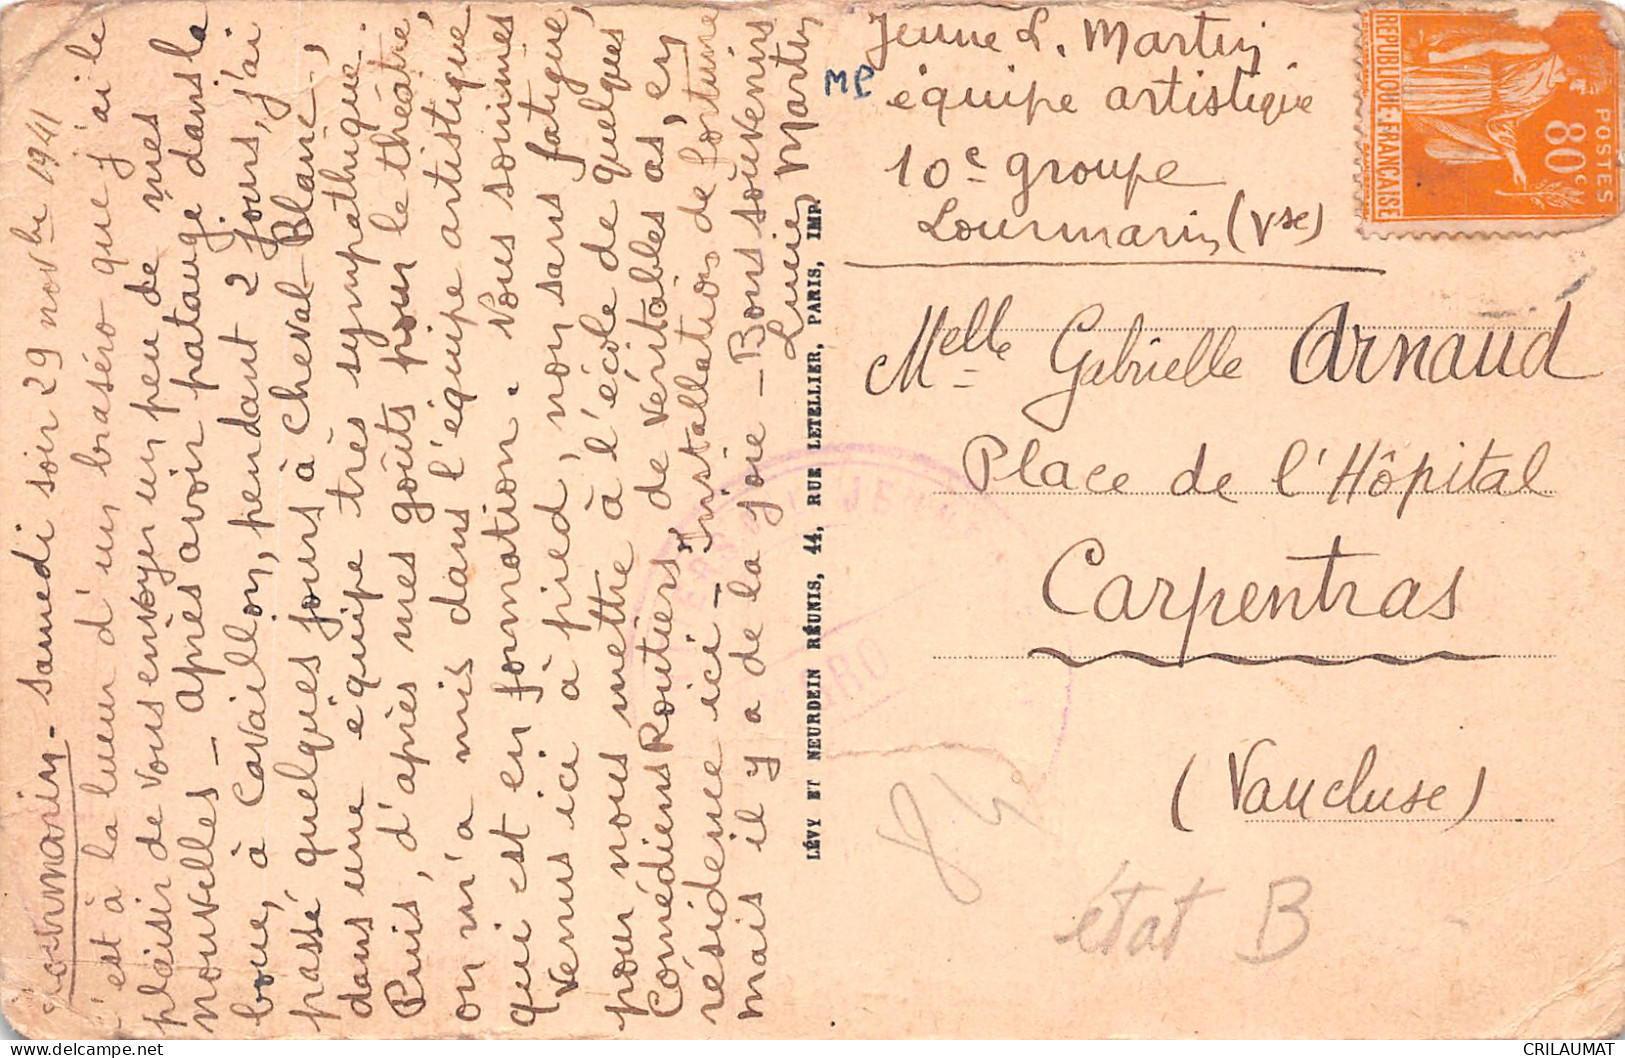 Lourmarin - samedi soir 29 novbre 1941
C'est à la lueur d'un braséro que j'ai le
plaisir de vous envoyer un peu de mes
nouvelles - Après avoir pataugé dans la
boue, à Cavaillon, pendant 2 jours, j'ai
passé quelques jours à Cheval-Blanc,
dans une équipe très sympathique.
Puis, d'après mes goûts pour le théâtre,
on m'a mis dans l'équipe artistique
qui est en formation. Nous sommes
venus ici à pied, non sans fatigue,
pour nous mettre à l'école de quelques
Comédiens Routiers, de véritables as, en
résidence ici - Installation de fortune
mais il y a de la joie - Bons souvenirs
Lucien Martin
LÉVY ET NEURDEIN RÉUNIS, 44, RUE LETELLIER, PARIS, IMP.
MP
Jeune L. Martin
équipe artistique
10e groupe
Lourmarin (Vse)
REPUBLIQUE FRANÇAISE
80c
POSTES
Melle Gabrielle Arnaud
Place de l'Hôpital
Carpentras
(Vaucluse)
état B
CRILAUMAT